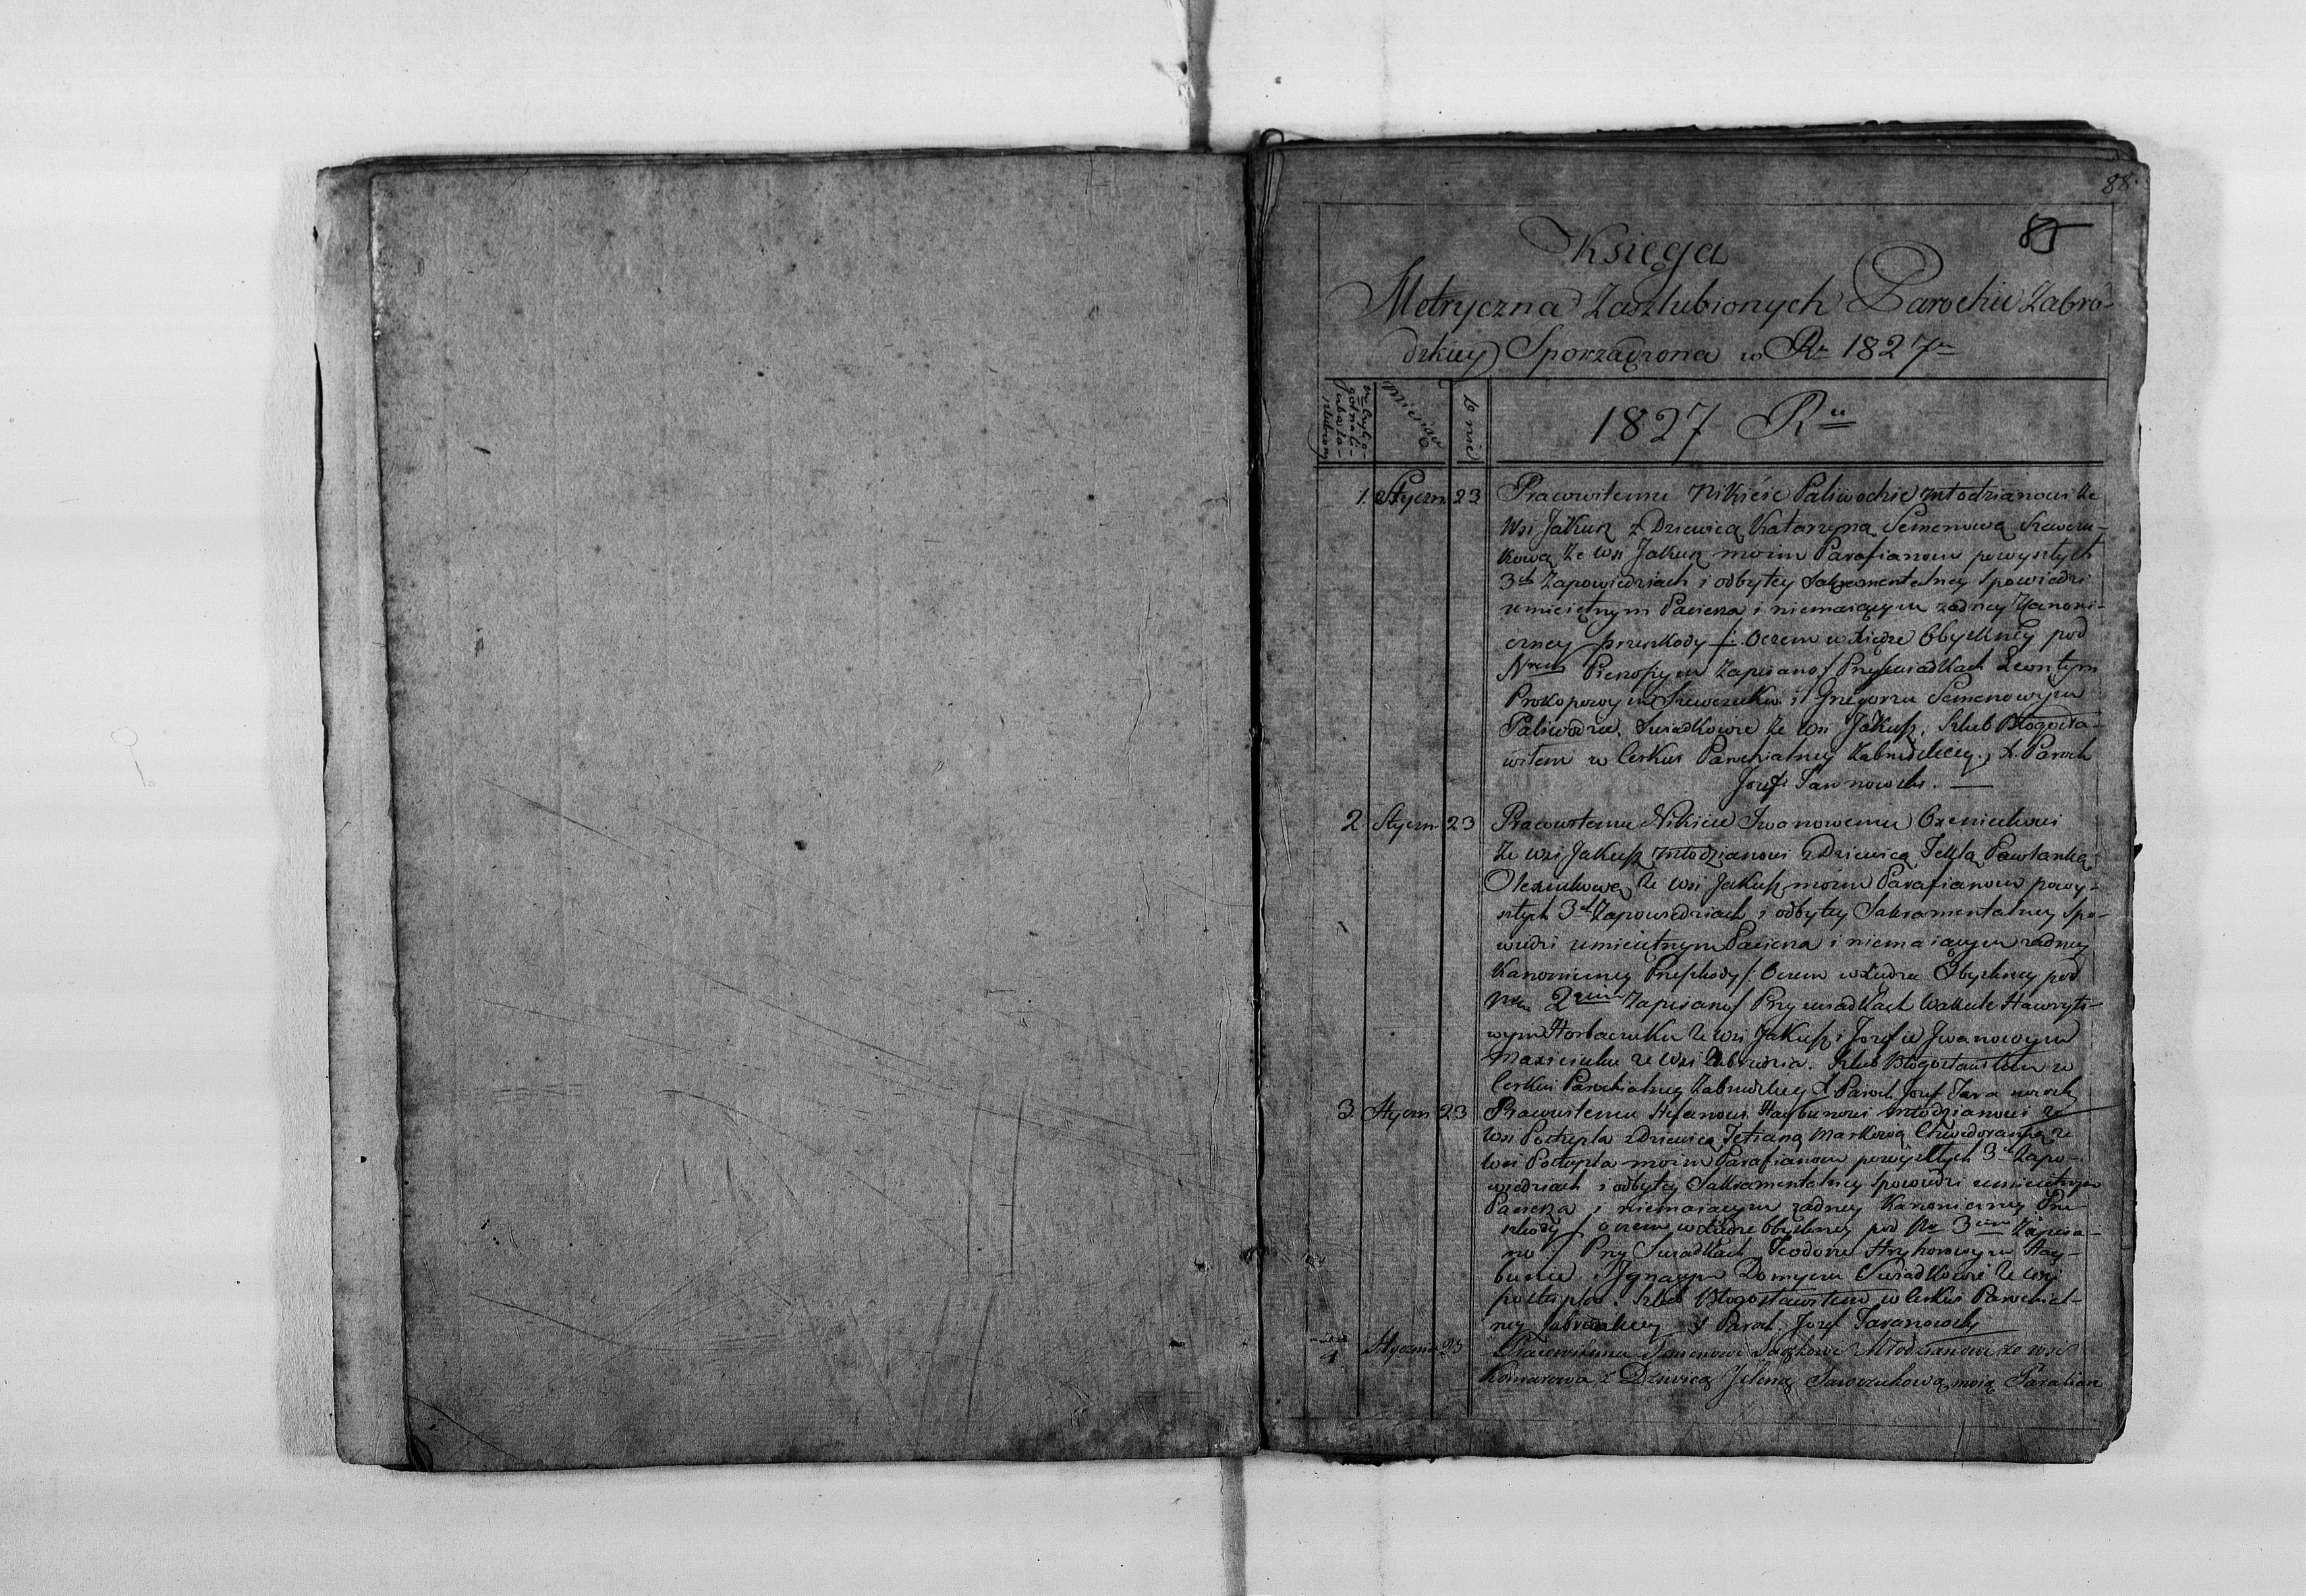 88.
85
Księga
Metryczna Zaszlubionych Parochii Zabro-
dzkiey Sporządzona w Ru 1827m
Miesiąc
Dnie
1827 Ru
1. Styczn. 23 Pracowitemu Nikicie Paliwodzie Młodzianowi ze
Wsi Jakusz z Dziewicą Katarzyną Semenową Szewczu-
kową ze Wsi Jakusz moim Parafianom powyszłych
3ch Zapowiedziach i odbytey Sakramentalney Spowiedzi
umieiętnym Pacierza i niemaiącym żadney Kanoni-
czney przeszkody /: Oczem w Xiędze Obysknéy pod
Nrem Pierwszym Zapisano/ Przyświadkach Leontym
Prokopowym Szewczuku i Grzegorzu Semenowym
Paliwodzie. Swiadkowie ze Wsi Jakusz. Szlub Błogosła-
wiłem w Cerkwi Parochialney Zabrodzkiey. X. Paroch
Jozef Taranowski. —
2 Styczn. 23 Pracowitemu Nikicie Iwanowemu
ze wsi Jakusz Młodzianowi z Dziewicą Teklą Pawlanką
ze Wsi Jakusz moim Parafianom powy-
szłych 3ch Zapowiedziach i odbytey Sakramentalney Spo-
wiedzi umieiętnym Pacierza i niemaiącym żadney
Kanoniczney Przeszkody /: Oczem w Xiędze Obyskney pod
Nrm 2gim Zapisano/ Przy swiadkach Wakule Hawryło-
wym Horbaczuku ze Wsi Jakusz i Jozefie Iwanowym
ze Wsi Zabrodzia. Szlub Błogosławiłem w
Cerkwi Parochialney Zabrodzkiey X Paroch Jozef Taranowski
3. Styczn 23 Pracowitemu Stefanowi Młodzianowi ze
Wsi Postupla z Dziewicą Tetianą Markową ze
Wsi Postupla moim Parafianom powyszłych 3ch Zapo-
wiedziach i odbytey Sakramentalney spowiedzi umieiętnym
Pacierza i niemaiącym żadney Kanoniczney Prze
szkody / oczem w Xiędze Obyskney pod Nr 3cim Zapisa-
no :/ Przy Swiadkach Teodorze Hryhorowym Hay-
bunie i Ignacym Swiadkowie ze wsi
postupla. Szlub Błogosławiłem w Cerkwi Parochial-
ney Zabrodzkiey X Paroch. Jozef Taranowski
4. Stycznia 23 Pracowitemu Semenowi Młodzianowi ze wsi
Komarowa z Dziewicą Jeleną moią Parafian